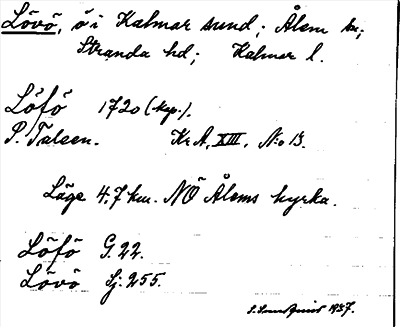 Lövö, ö i Kalmar sund; Ålem sn;
Stranda hd; Kalmar l.
Löfö 1720 (kop.).
P. Talsen. Kr A, XIII, No 13.
Läge 4,7 km. NÖ Ålems kyrka.
Löfö G. 22.
Lövö Sj. 255.
1937.